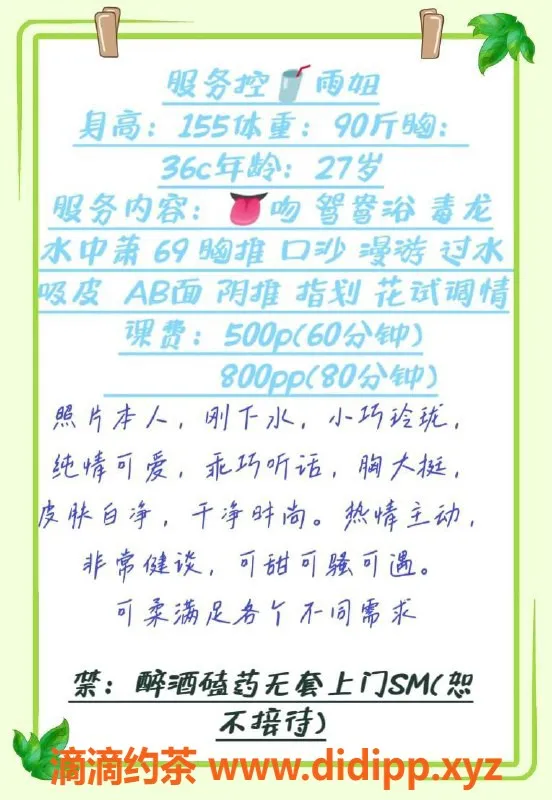 服务控🥤雨姐
身高：155体重：90斤胸：
36c年龄：27岁
服务内容：👅吻 鸳鸯浴 毒龙
水中萧 69 胸推 口沙 漫游 过水
吸皮 AB面 阴推 指划 花试调情
课费：500p(60分钟)
800pp(80分钟)
照片本人，刚下水，小巧玲珑，
纯情可爱，乖巧听话，胸大挺，
皮肤白净，干净时尚。热情主动，
非常健谈，可甜可骚可遇。
可柔满足各个不同需求
禁：醉酒磕药无套上门SM(恕
不接待)
滴滴约茶 www.didipp.xyz